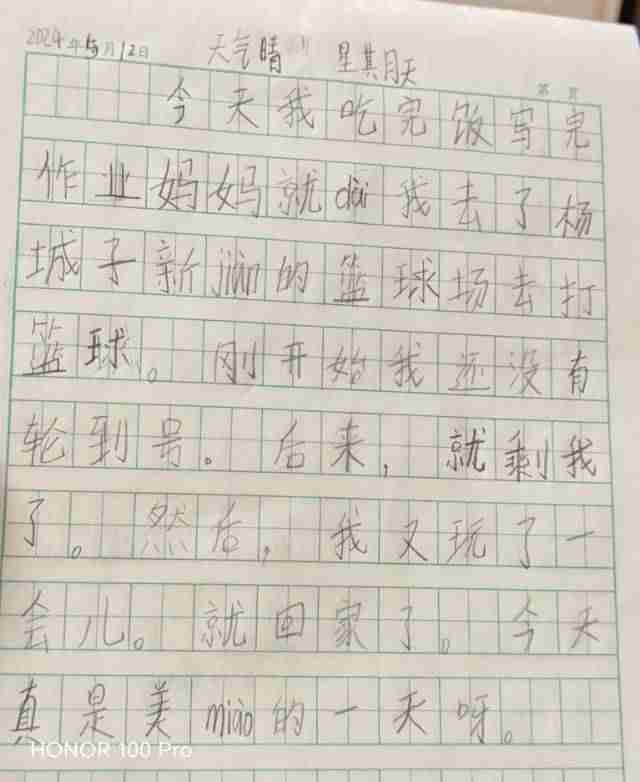 2024年5月12日 天气晴 星其月天
第 页
今天我吃完饭写完
作业妈妈就dài我去了杨
城子新jiàn的篮球场去打
篮球。刚开始我还没有
轮到号。后来,就剩我
了。然后,我又玩了一
会儿。就回家了。今天
真是美miào的一天呀。
HONOR 100 Pro